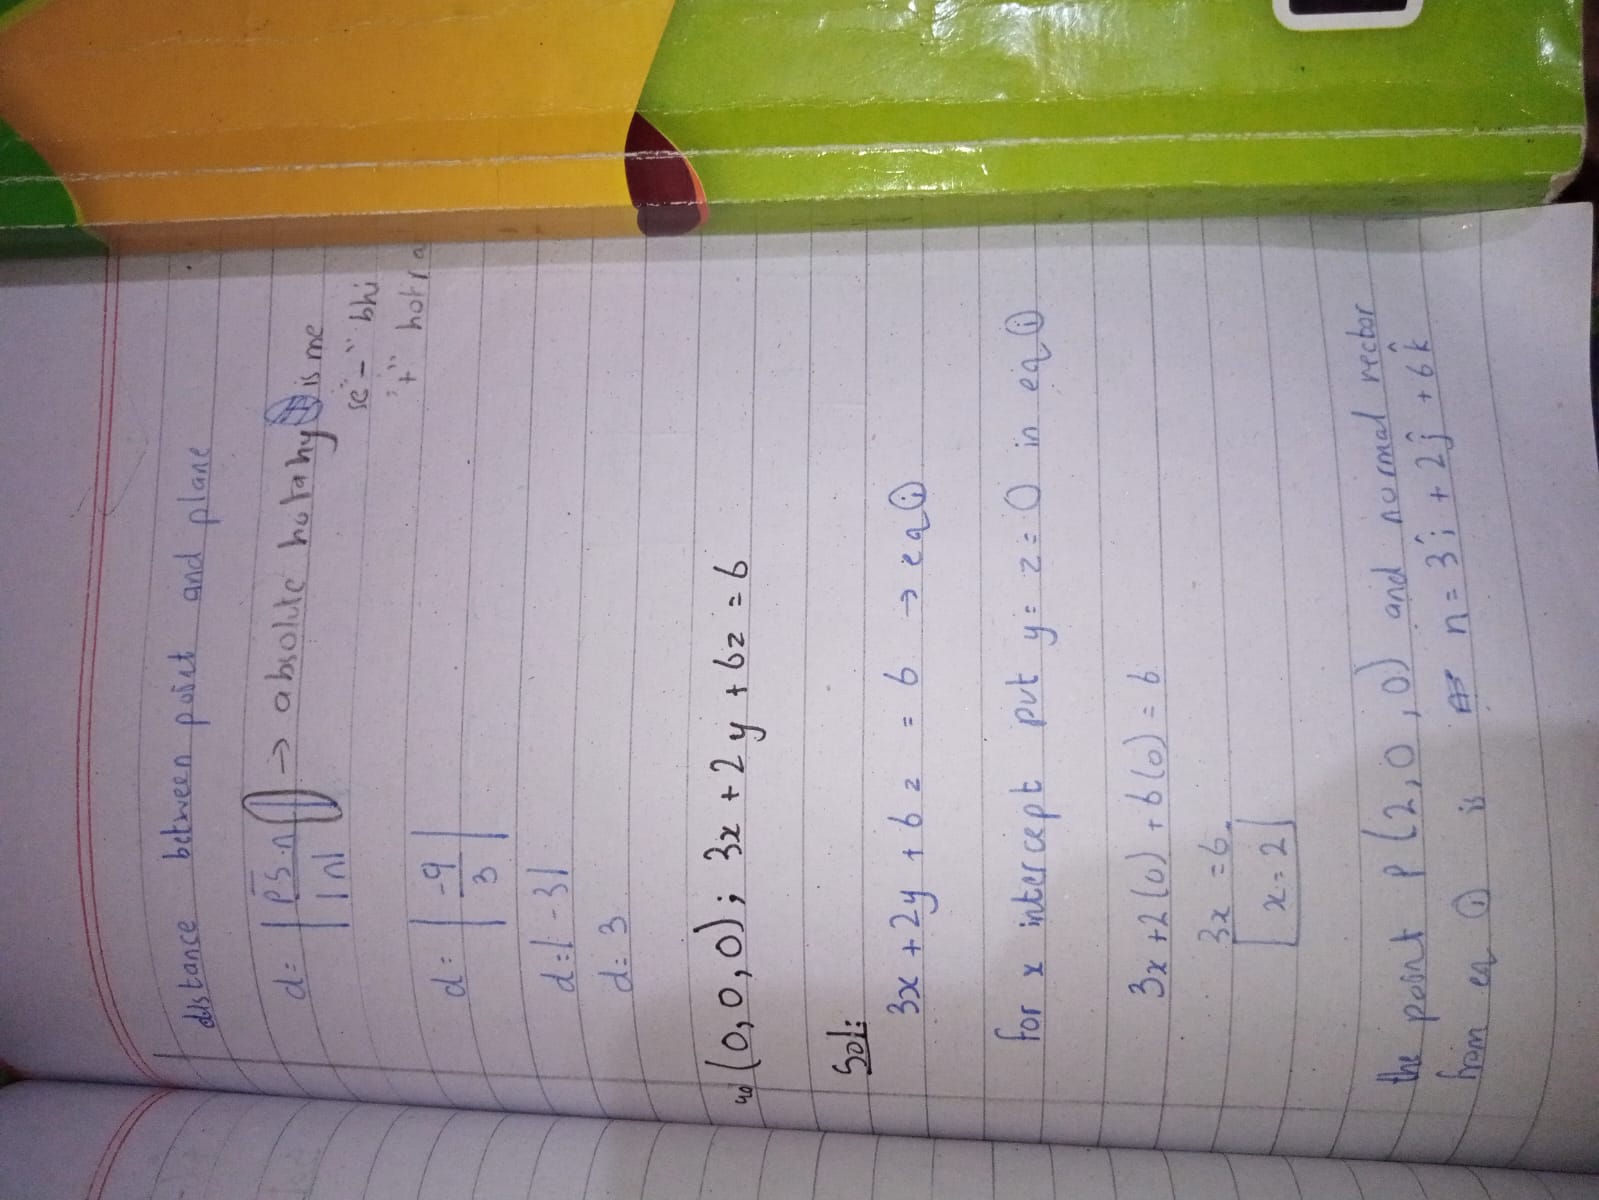 distance between point and plane
d = | PS . n | → absolute hota hy is me
|n|
se "-" bhi
"+" hot ra
d = | -9 |
3
d = | -3 |
d = 3
(0,0,0); 3x + 2y + 6z = 6
Sol:
3x + 2y + 6z = 6 → eq (i)
for x intercept put y = z = 0 in eq (i)
3x + 2(0) + 6(0) = 6
3x = 6
x = 2
the point P(2,0,0) and normal vector
from eq (i) is n = 3î + 2ĵ + 6k̂